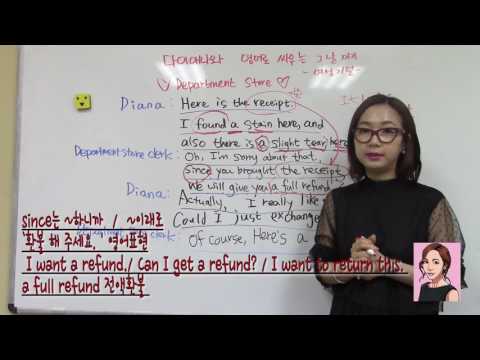 다이애나와 영어로 싸우는 그 날까지
- 여성기본 -
♡ Department Store ♡
Diana: Here is the receipt.
I found a stain here, and
also there is a slight tear here.
Department store clerk: Oh, I'm sorry about that,
since you brought the receipt,
We will give you a full refund
Diana: Actually, I really like
Could I just exchange
clerk: Of course, Here's a
since는 ~하니까 / ~이래로
'환불 해 주세요.' 영어표현
I want a refund./ Can I get a refund? / I want to return this.
a full refund 전액환불